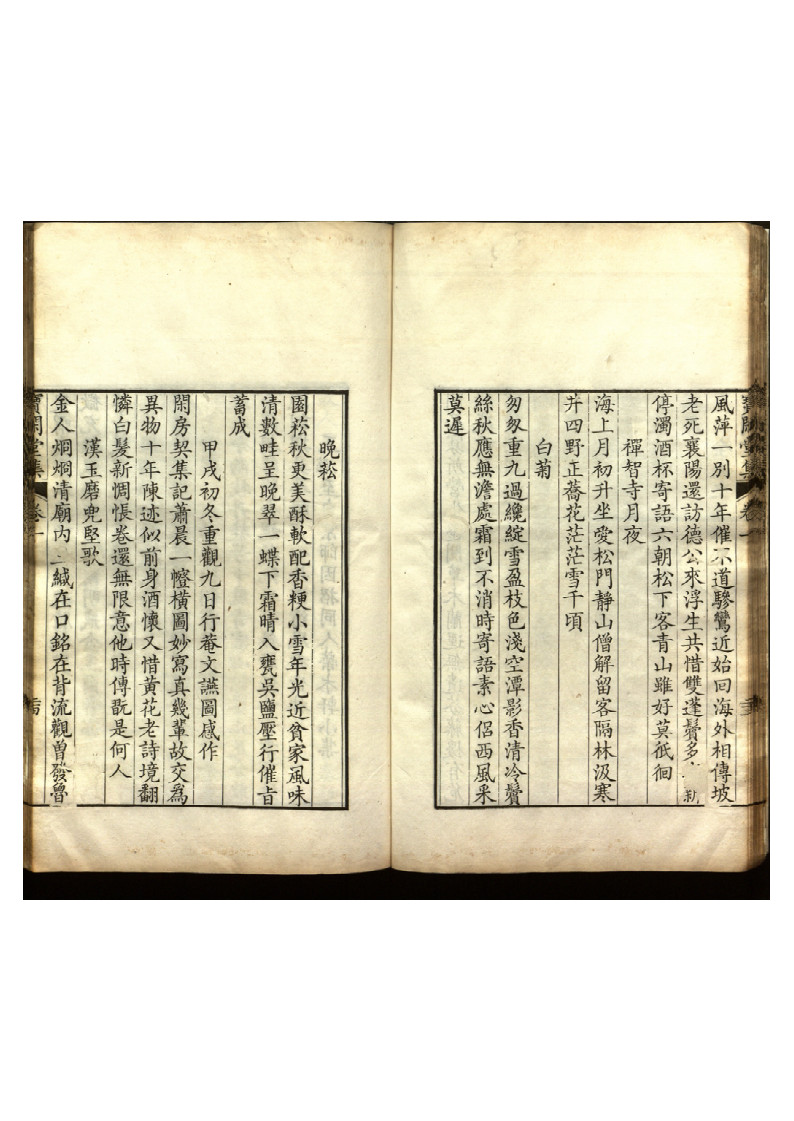 風萍一別十年催不道驂鸞近始回海外相傳坡
老死襄陽還訪德公來浮生共惜雙蓬鬢多
停濁酒杯寄語六朝松下客青山雖好莫祇徊
禪智寺月夜
海上月初升坐愛松門靜山僧解留客隔林汲寒
井四野正蕎花茫茫雪千頃
白菊
匆匆重九過纔綻雪盈枝色淺空潭影香清冷鬢
絲秋應無澹處霜到不消時寄語素心侶西風采
莫遲
晚菘
園菘秋更美酥軟配香粳小雪年光近貧家風味
清數畦呈晚翠一蝶下霜晴入甕吳鹽壓行催旨
蓄成
甲戌初冬重觀九日行菴文讌圖感作
閑房契集記蕭晨一㡧橫圖妙寫真幾輩故交為
異物十年陳迹似前身酒懷又惜黃花老詩境翻
憐白髮新惆悵卷還無限意他時傳翫是何人
漢玉磨兜堅歌
金人烱烱清廟內三緘在口銘在背流觀曽發魯
寶閑堂集 卷一